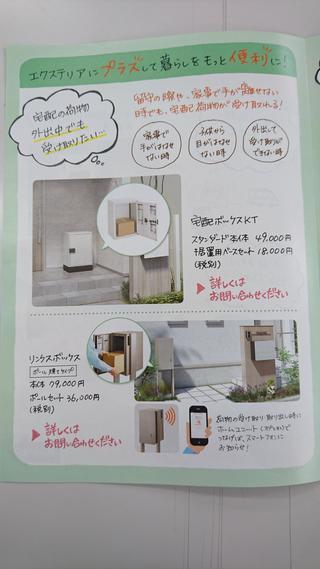 エクステリアにプラスして暮らしをもっと便利に!
宅配の荷物
外出中でも
受け取りたい…
留守の際や、家事で手が離せない
時でも、宅配荷物が受け取れる!
家事で
手がはなせ
ない時
子供から
目がはなせ
ない時
外出して
受け取りが
できない時
宅配ボックスKT
スタンダード本体 49,000円
+据置用ベースセット 18,000円
(税別)
▶ 詳しくは
お問い合わせください
リンクスボックス
ポール建てタイプ
本体 79,000円
ポールセット 36,000円
(税別)
▶ 詳しくは
お問い合わせください
荷物の受け取り・取り出し時に
ホームユニット(オプション)で
つなげば、スマートフォンに
お知らせ!